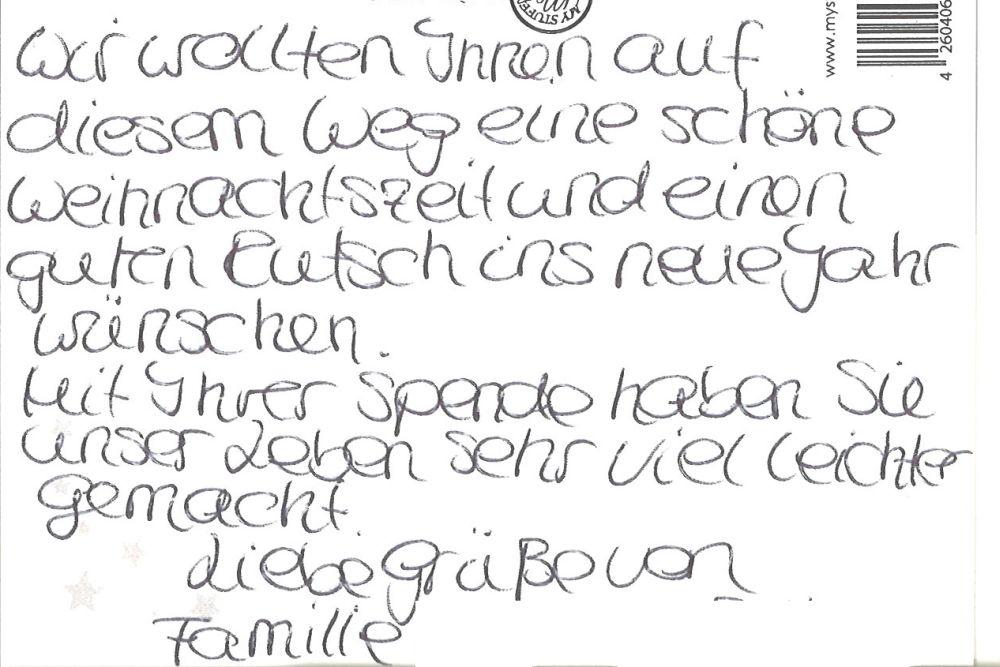 MY STUFF
www.mys
4 260406
Wir wollten Ihnen auf
diesem Weg eine schöne
Weihnachtszeit und einen
guten Rutsch ins neue Jahr
wünschen.
Mit Ihrer Spende haben Sie
unser Leben sehr viel leichter
gemacht.
Liebe Grüße von
Familie